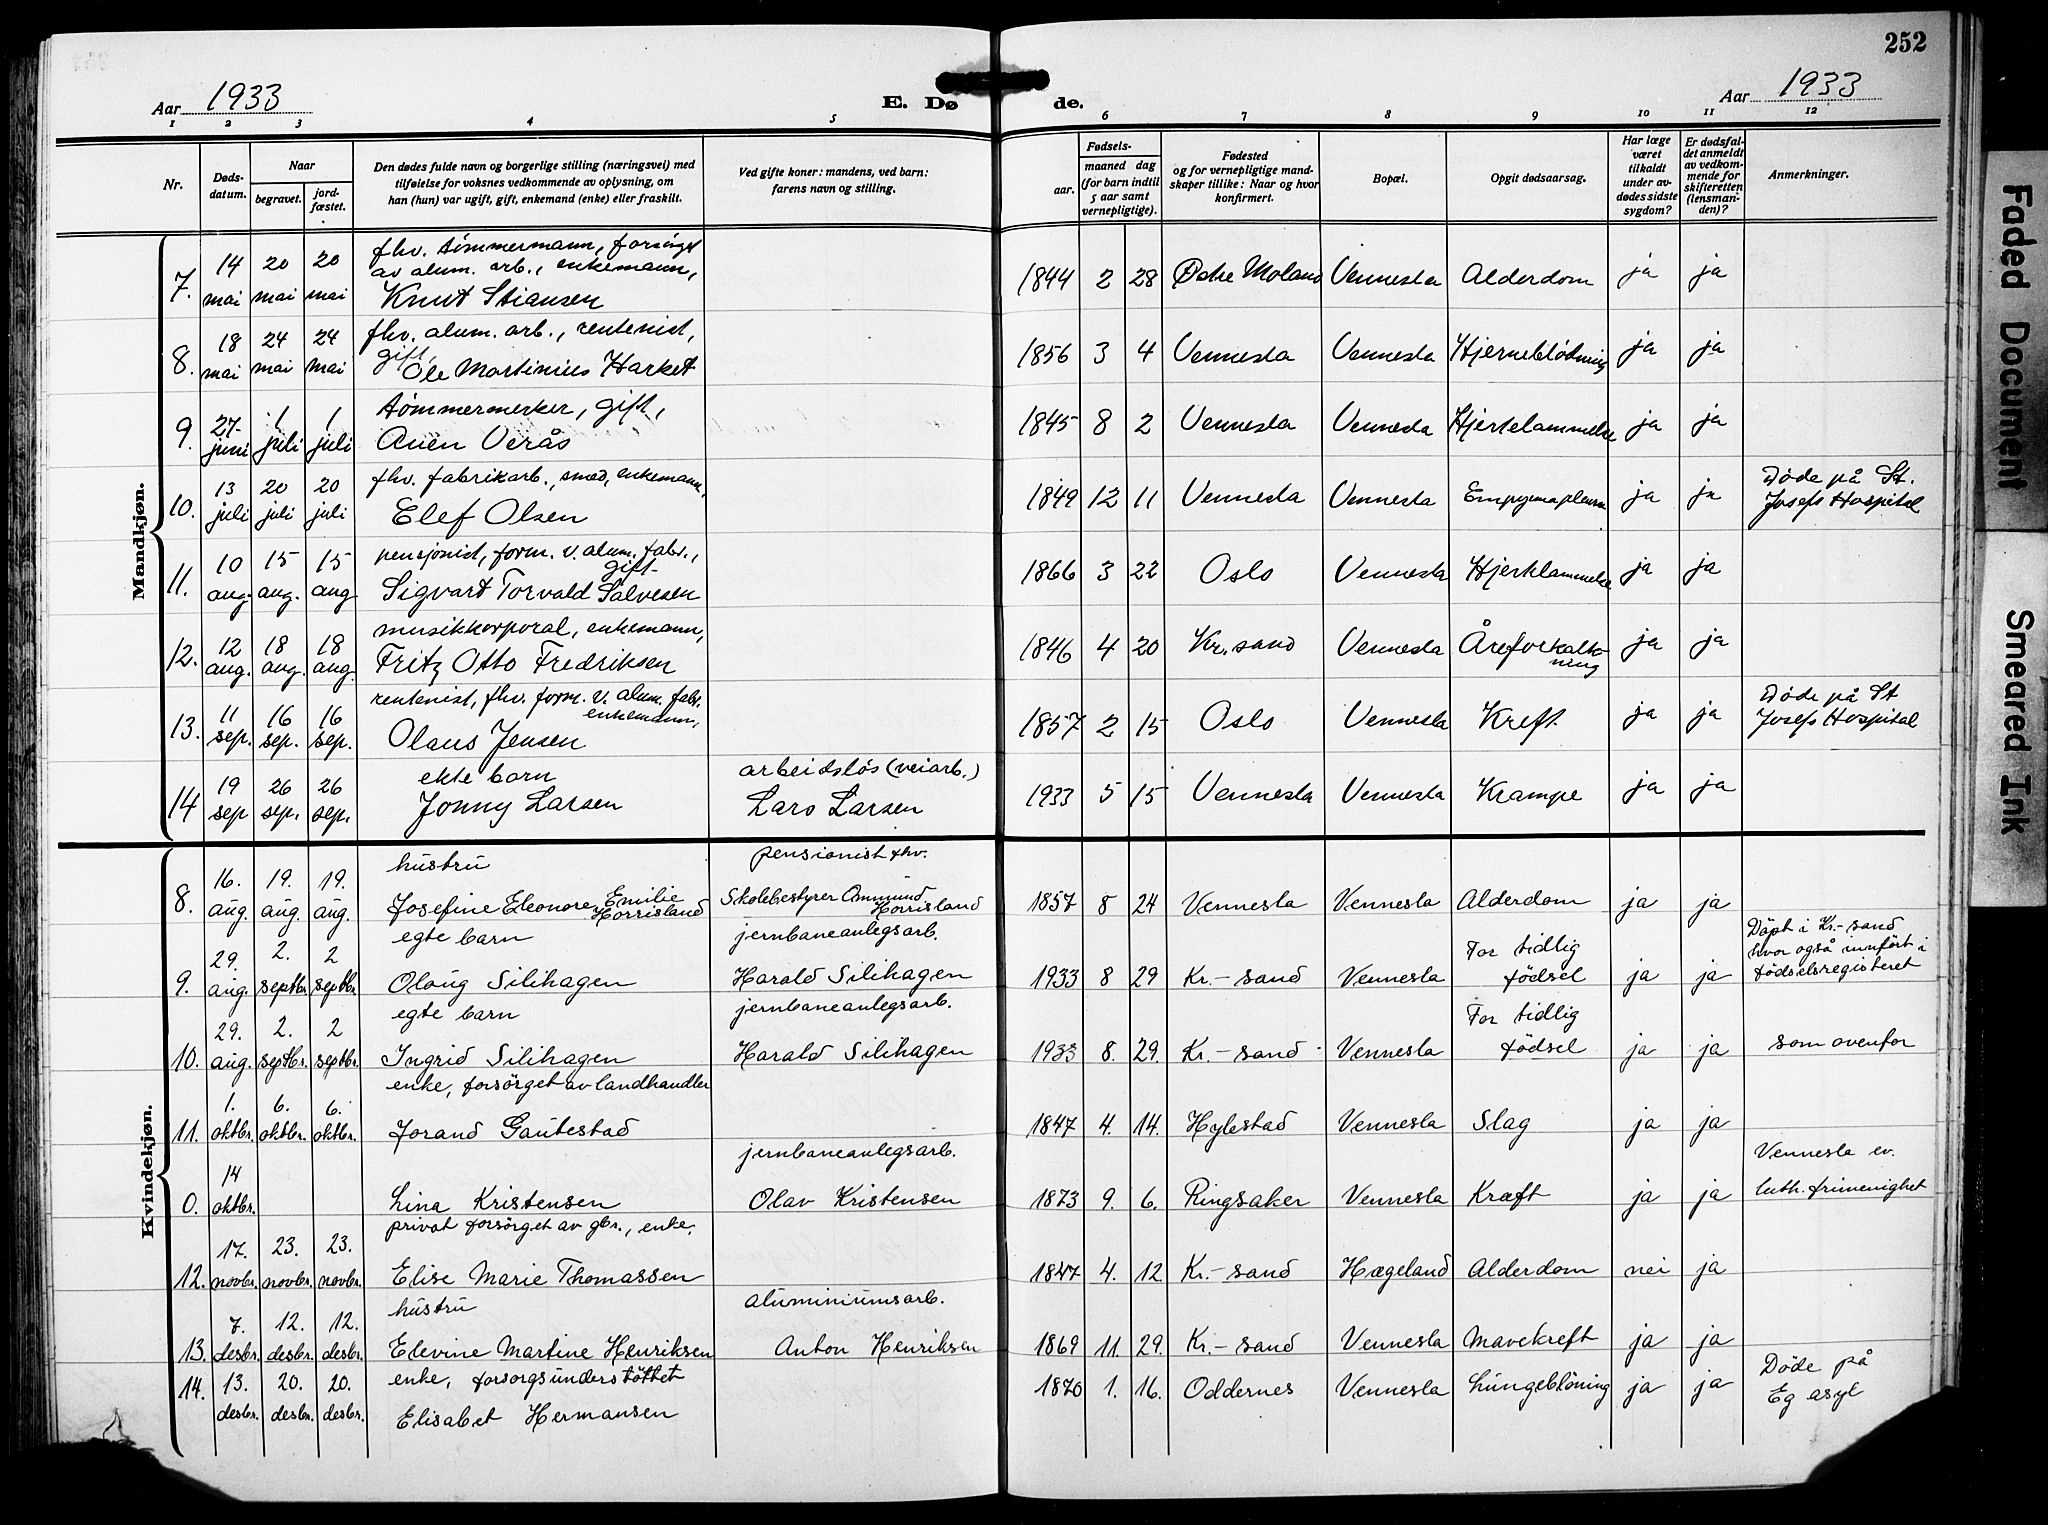 252
Aar 1933
E. Dø de.
Aar 1933
1 2 3 4 5 6 7 8 9 10 11 12
Nr.
Døds-
datum.
Naar
begravet.
jord-
fæstet.
Den dødes fulde navn og borgerlige stilling (næringsvei) med
tilføielse for voksnes vedkommende av oplysning, om
han (hun) var ugift, gift, enkemand (enke) eller fraskilt.
Ved gifte koner: mandens, ved barn:
farens navn og stilling.
Fødsels-
aar.
maaned dag
(for barn indtil
5 aar samt
vernepligtige).
Fødested
og for vernepligtige mand-
skaper tillike: Naar og hvor
konfirmert.
Bopæl.
Opgit dødsaarsag.
Har læge
været
tilkaldt
under av-
dødes sidste
sygdom?
Er dødsfal-
det anmeldt
av vedkom-
mende for
skifteretten
(lensman-
den)?
Anmerkninger.
Mandkjøn.
fhv. tømmermann, forsörget
av alum. arb., enkemann,
7. 14 mai 20 mai 20 mai Knut Stiansen 1844 2 28 Østre Moland Vennesla Alderdom ja ja
fhv. alum. arb., rentenist,
gift,
8. 18 mai 24 mai 24 mai Ole Martinius Harket 1856 3 4 Vennesla Vennesla Hjerneblødning ja ja
tömmermerker, gift,
9. 27. juni 1 juli 1 juli Auen Verås 1845 8 2 Vennesla Vennesla Hjertelammelse ja ja
fhv. fabrikarb., smed, enkemann,
10. 13 juli 20 juli 20 juli Elef Olsen 1849 12 11 Vennesla Vennesla Empyema pleurae ja ja Døde på St.
Josefs Hospital
pensjonist, form. v. alum. fabr.,
gift
11. 10 aug. 15 aug. 15 aug Sigvart Torvald Salvesen 1866 3 22 Oslo Vennesla Hjerklammelse ja ja
musikkorporal, enkemann,
12. 12 aug. 18 aug. 18 aug. Fritz Otto Fredriksen 1846 4 20 Kr. sand Vennesla Åreforkalk-
ning ja ja
rentenist, fhv. form. v. alum. fabr.
enkemann,
13. 11 sep. 16 sep. 16 sep. Olaus Jensen 1857 2 15 Oslo Vennesla Kreft ja ja Døde på St
Josefs Hospital
ekte barn arbeidslös (veiarb.)
14 19 sep 26 sep. 26 sep. Jonny Larsen Lars Larsen 1933 5 15 Vennesla Vennesla Krampe ja ja
Kvindekjøn.
hustru pensionist fhv.
8. 16. aug. 19. aug. 19. aug. Josefine Eleonore Emilie
Horrisland Skolebestyrer Ommund
Horrisland 1857 8 24 Vennesla Vennesla Alderdom ja ja
egte barn jernbaneanlegsarb.
9. 29. aug. 2. septbr. 2 septbr. Olaug Silihagen Harald Silihagen 1933 8 29 Kr.-sand Vennesla For tidlig
födsel ja ja Döpt i Kr.-sand
hvor også innfört i
födselsregisteret
egte barn jernbaneanlegsarb.
10. 29. aug. 2. septbr. 2 septbr. Ingrid Silihagen Harald Silihagen 1933 8. 29. Kr.-sand Vennesla For tidlig
födsel ja ja som ovenfor
enke, forsörget av landhandler
11. 1. oktbr. 6. oktbr. 6. oktbr. Jorand Gautestad 1847 4. 14. Hylestad Vennesla Slag ja ja
jernbaneanlegsarb.
0. 14 oktbr. Lina Kristensen Olav Kristensen 1873 9. 6. Ringsaker Vennesla Kræft ja ja Vennesla ev.
luth. frimenighet
privat forsörget av gbr., enke.
12. 17. novbr. 23. novbr. 23. novbr. Elise Marie Thomassen 1847 4. 12 Kr.-sand Hægeland Alderdom nei ja
hustru aluminiumsarb.
13. 7. desbr. 12. desbr. 12. desbr. Elevine Martine Henriksen Anton Henriksen 1869 11. 29. Kr.-sand Vennesla Mavekreft ja ja
enke, forsorgsunderstöttet
14. 13. desbr. 20. desbr. 20. desbr. Elisabet Hermansen 1870 1. 16. Oddernes Vennesla Lungeblöning ja ja Döde på
Eg asyl
Faded Document
Smeared Ink